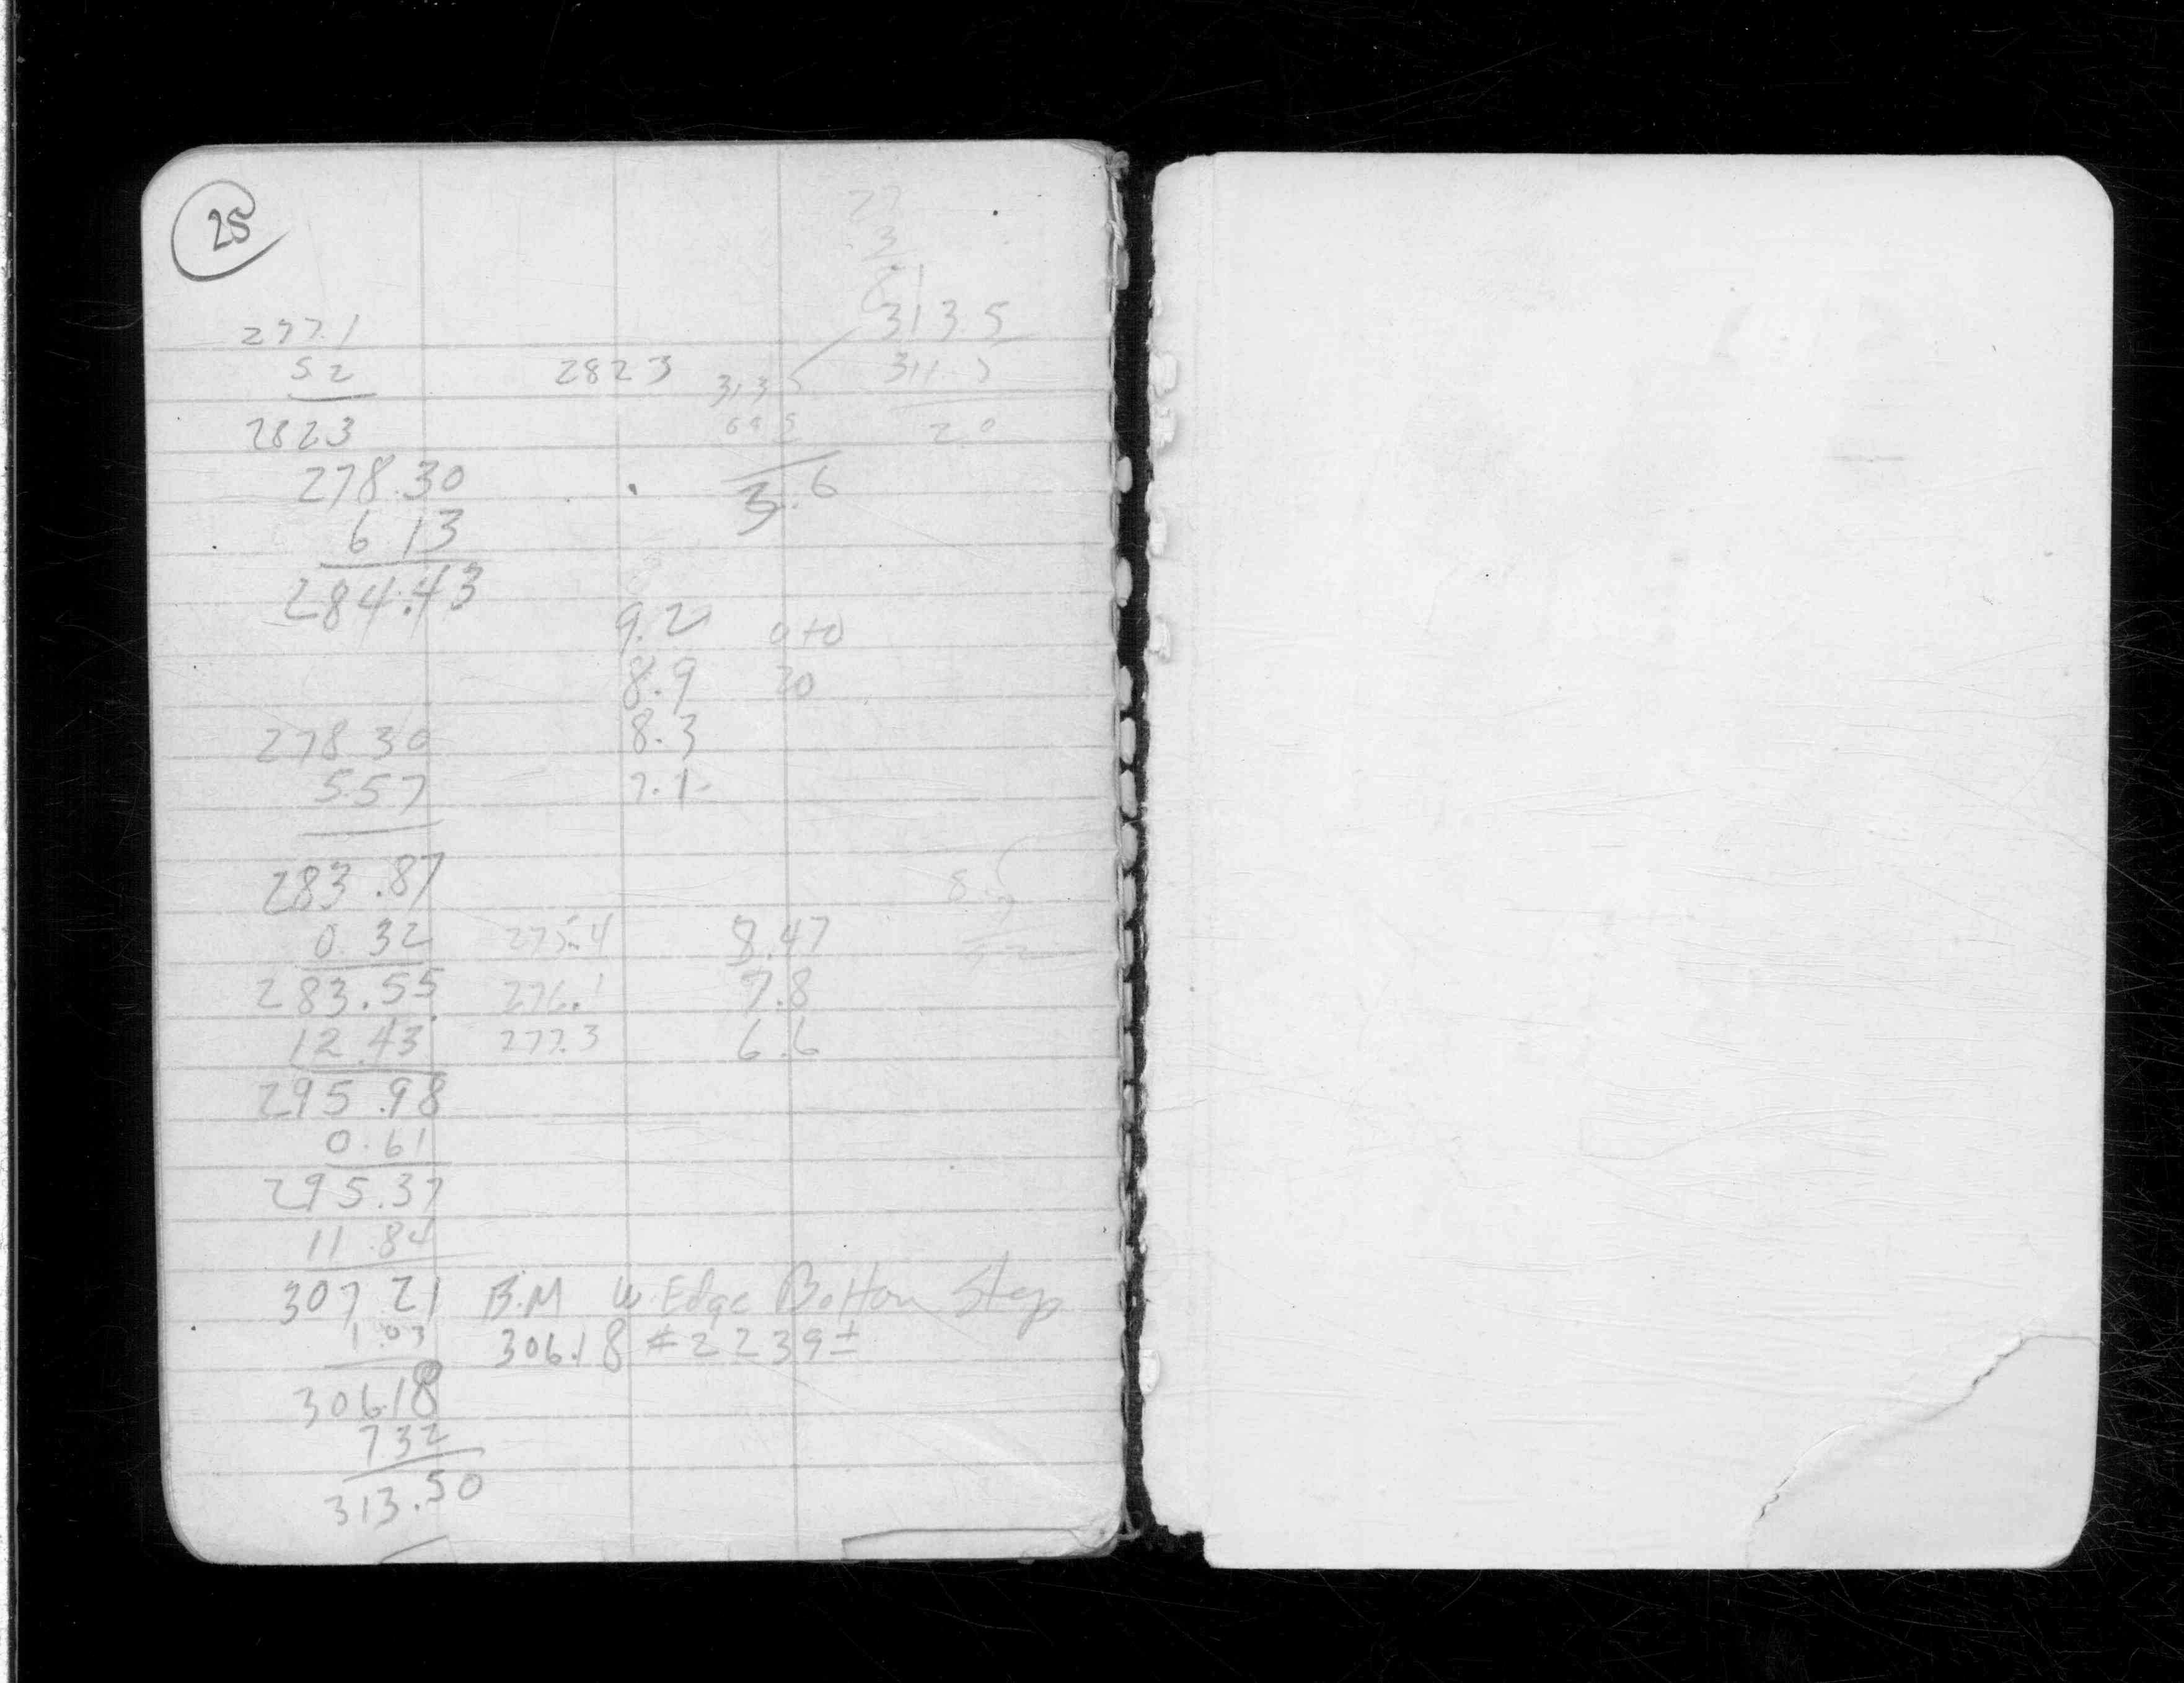 25
27
3
81
277.1
313.5
52
2823
313 5
311.5
2823
69 5
2.0
278.30
3.6
6 13
284.43
9.2 0+0
8.9 20
278 30 8.3
5.57 7.1
283.87
0.32 275.4 8.47
283.55 276.1 7.8
12.43 277.3 6.6
295.98
0.61
295.37
11.84
307.21 B.M W. Edge Bottom Step
1.03 306.18 # 2239±
306.18
732
313.50